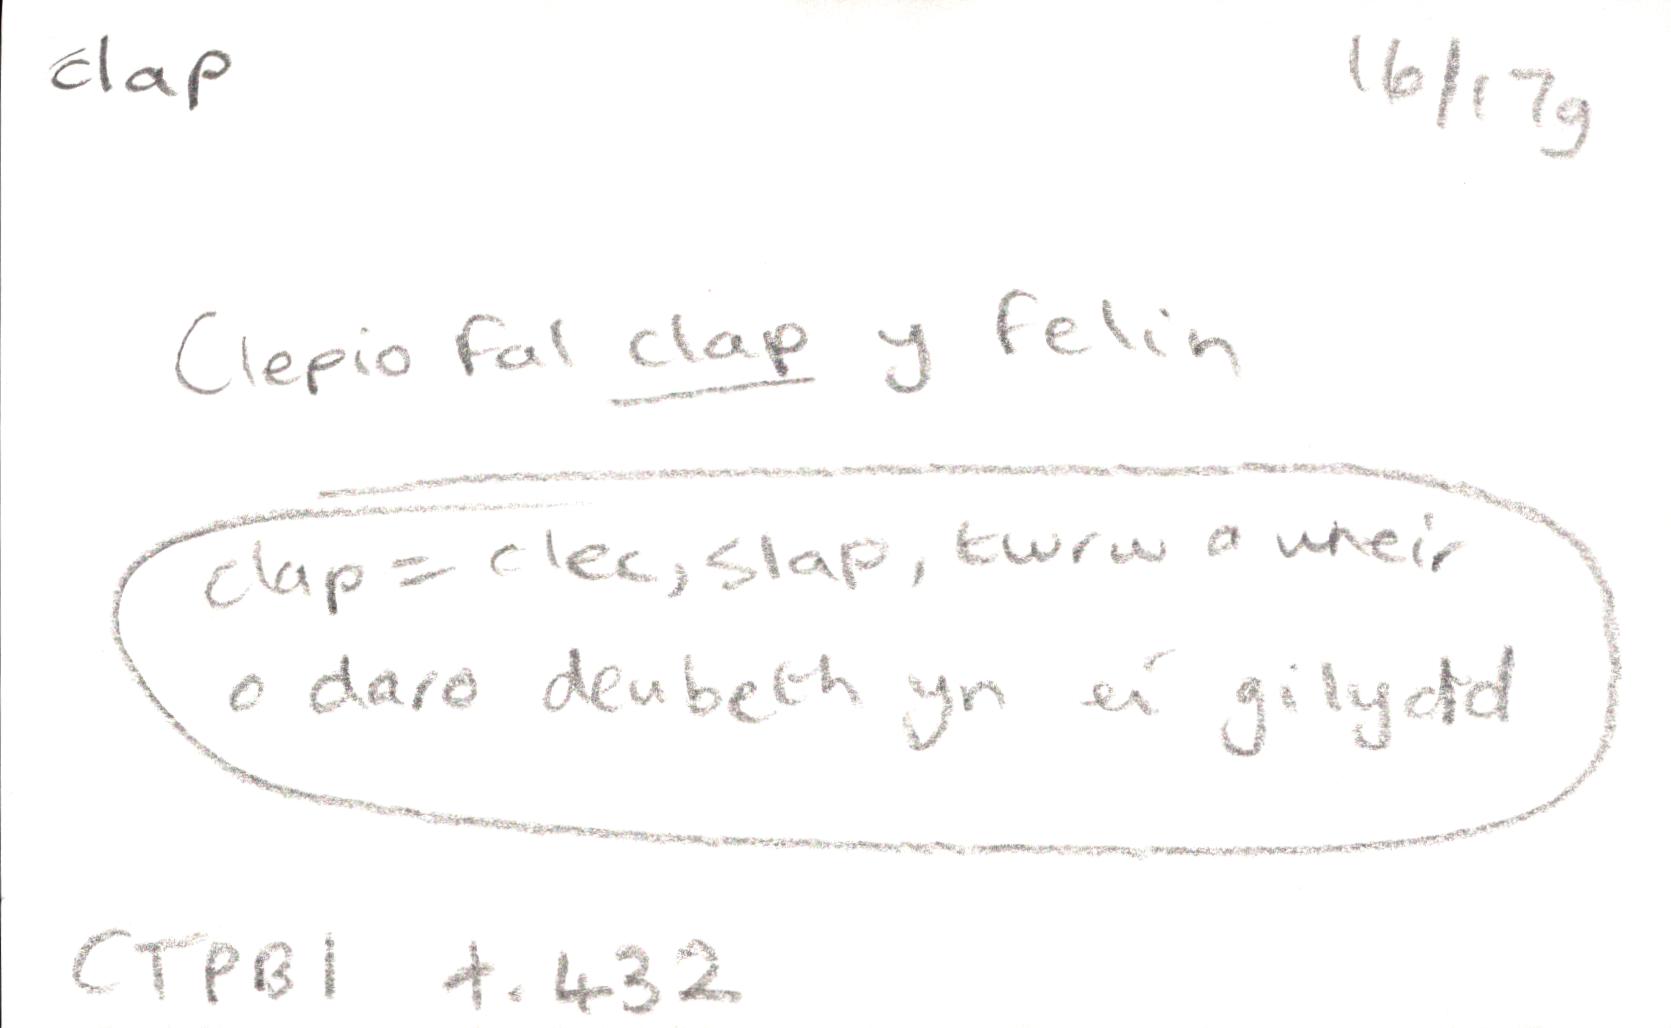 clap 16/17g
Clepio fal clap y felin
clap = clec, slap, twrw a wneir
o daro deubeth yn ei gilydd
CTPB1 t.432